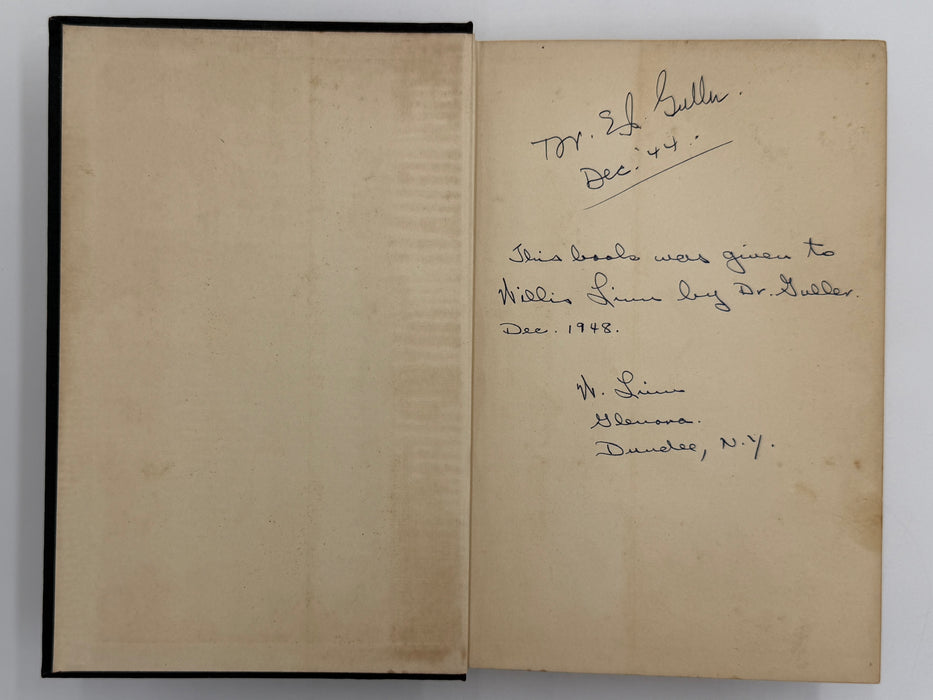 Dr. Ed. Guller.
Dec. '44.
This book was given to
Willis Linn by Dr. Guller.
Dec. 1948.
W. Linn
Glenora.
Dundee, N.Y.